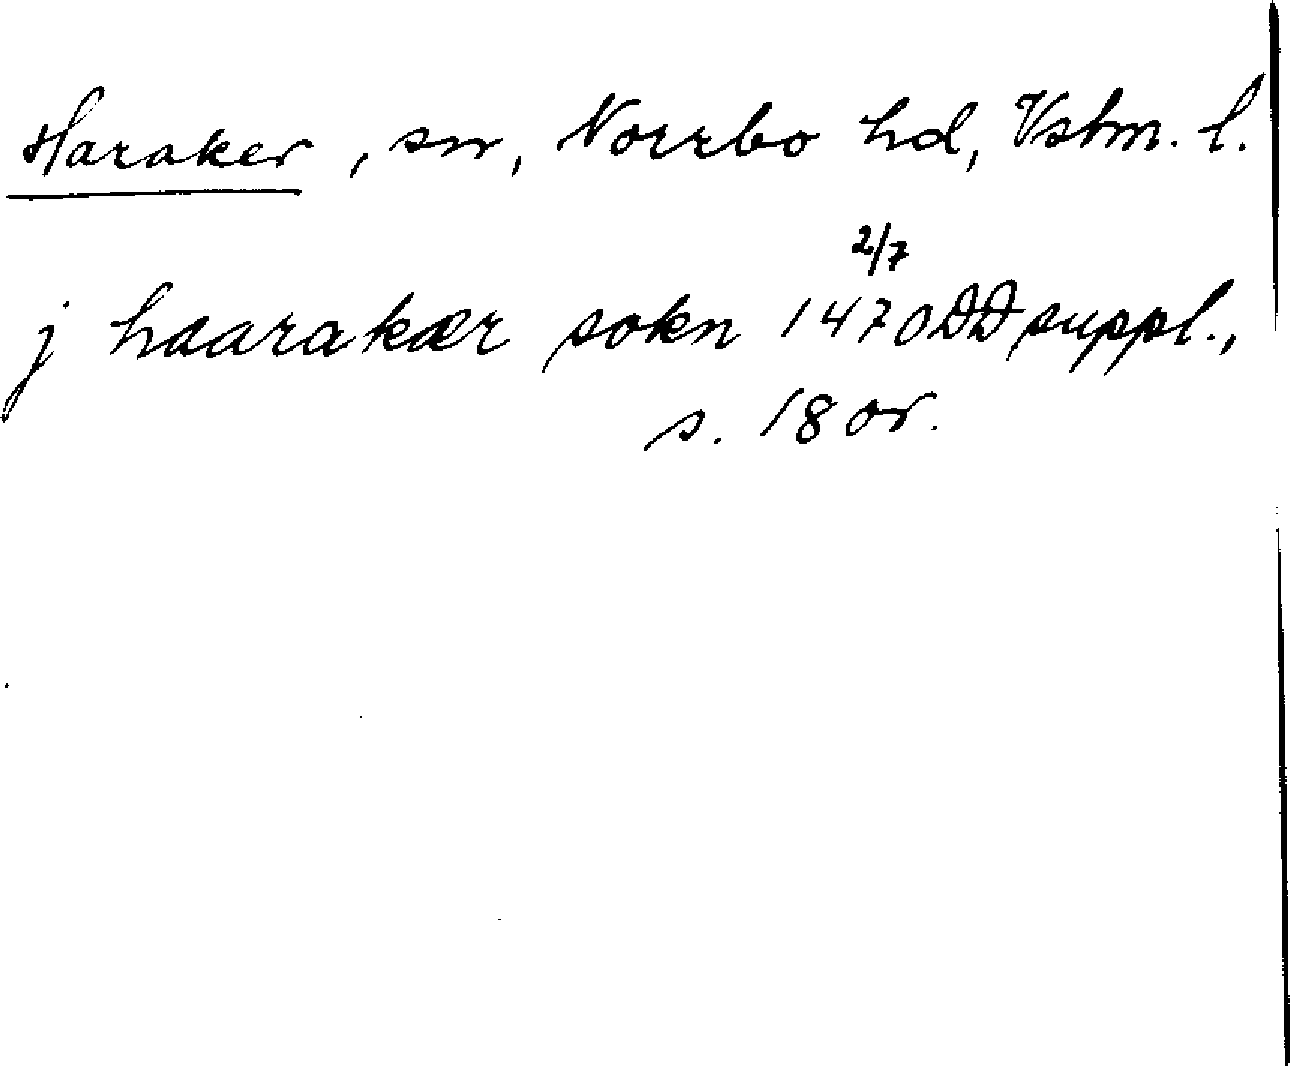 Haraker, sn, Norrbo hd, Vstm. l.
2/7
j haarakær sokn 1470 DD suppl.,
s. 18 or.